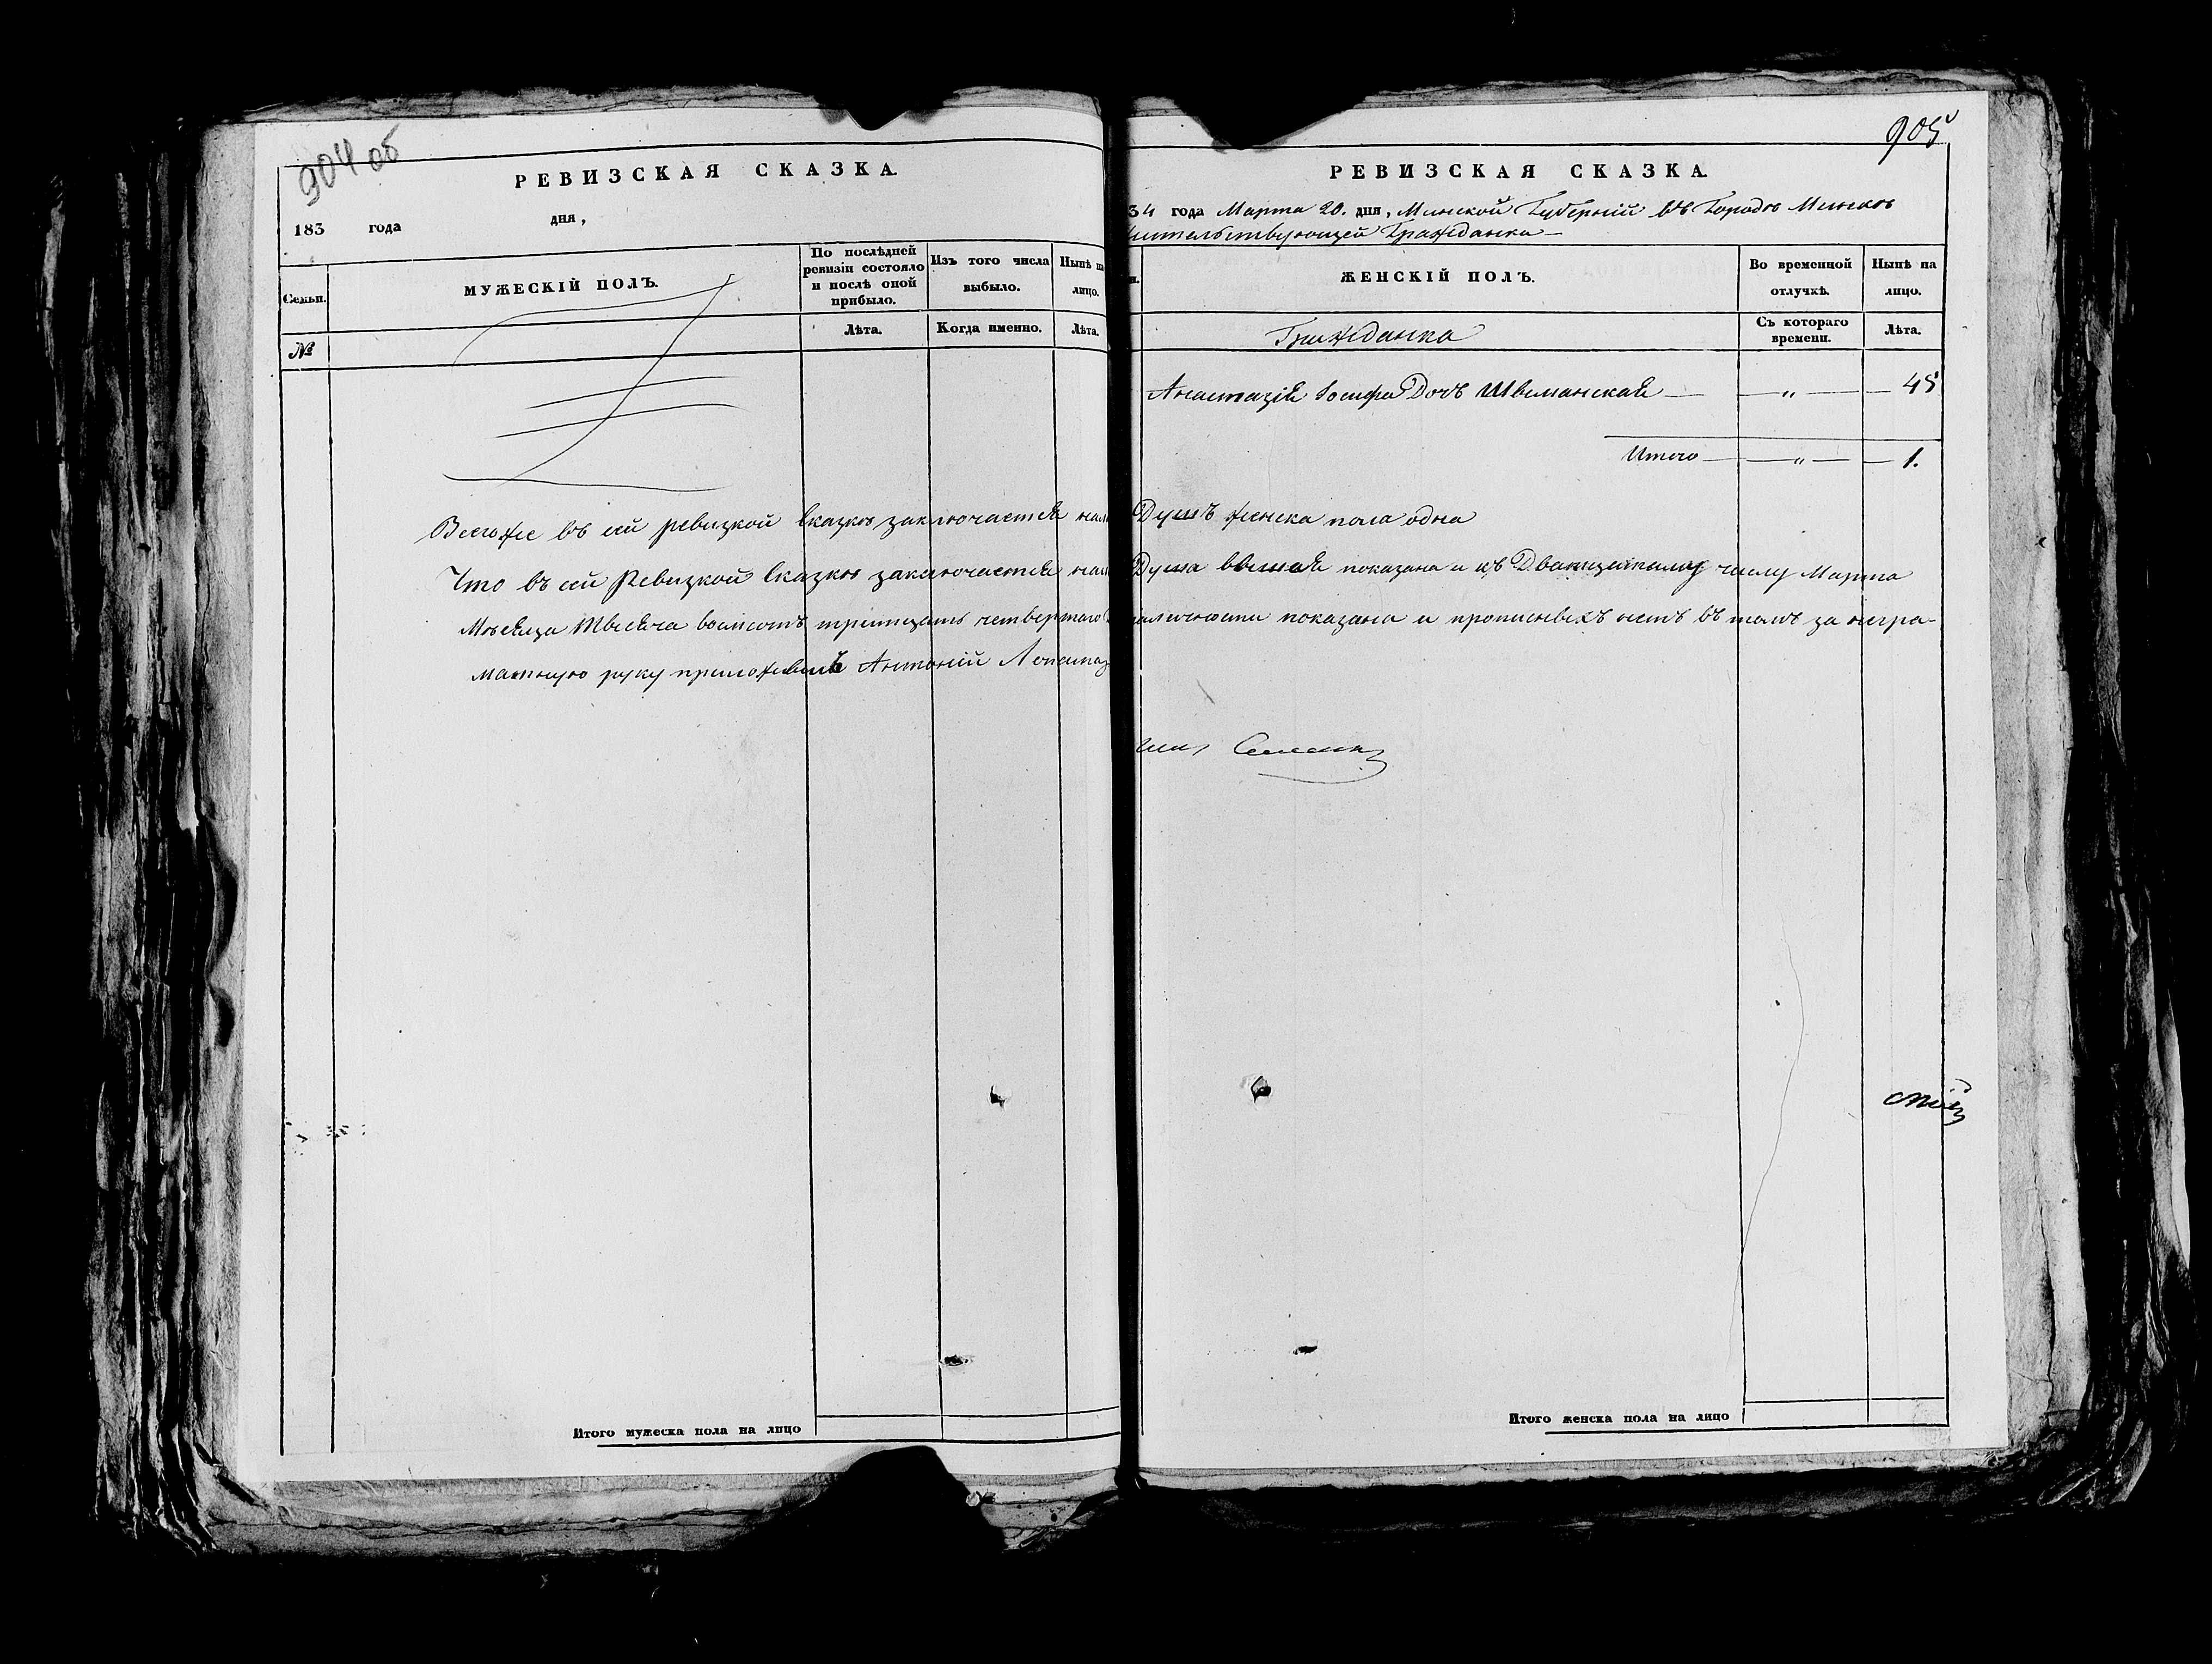 904 об
РЕВИЗСКАЯ СКАЗКА.
183 года дня,
Семьи.
МУЖЕСКІЙ ПОЛЪ.
По послѣдней ревизіи состояло и послѣ оной прибыло.
Изъ того числа выбыло.
Нынѣ на лицо.
№
Лѣта.
Когда именно.
Лѣта.
Всегоже въ сей ревизкой сказкѣ заключается нали
Что въ сей Ревизкой сказкѣ заключается нали
Мѣсяца Тысяча восмсотъ тритцать четвертаго
матную руку приложилъ Антоній
Итого мужеска пола на лицо
905
РЕВИЗСКАЯ СКАЗКА.
34 года Марта 20. дня, Минской Губерніи въ Городѣ Минскѣ
жительствующей Гражданки
ЖЕНСКІЙ ПОЛЪ.
Во временной отлучкѣ.
Нынѣ на лицо.
Гражданка
Съ котораго времени.
Лѣта.
Анастазія Іосифа Дочь Швыманская — „ — 45
Итого — „ — 1.
Душъ женска пола одна
Душа показана и къ Дванцатому числу Марта
наличности показана и прописныхъ нетъ въ томъ за негра-
Итого женска пола на лицо